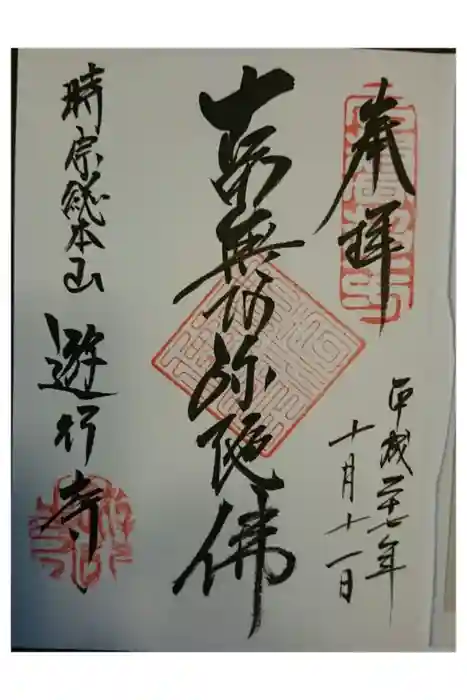 奉拝
平成二十七年
十月十一日
南無阿弥陀佛
時宗総本山
遊行寺